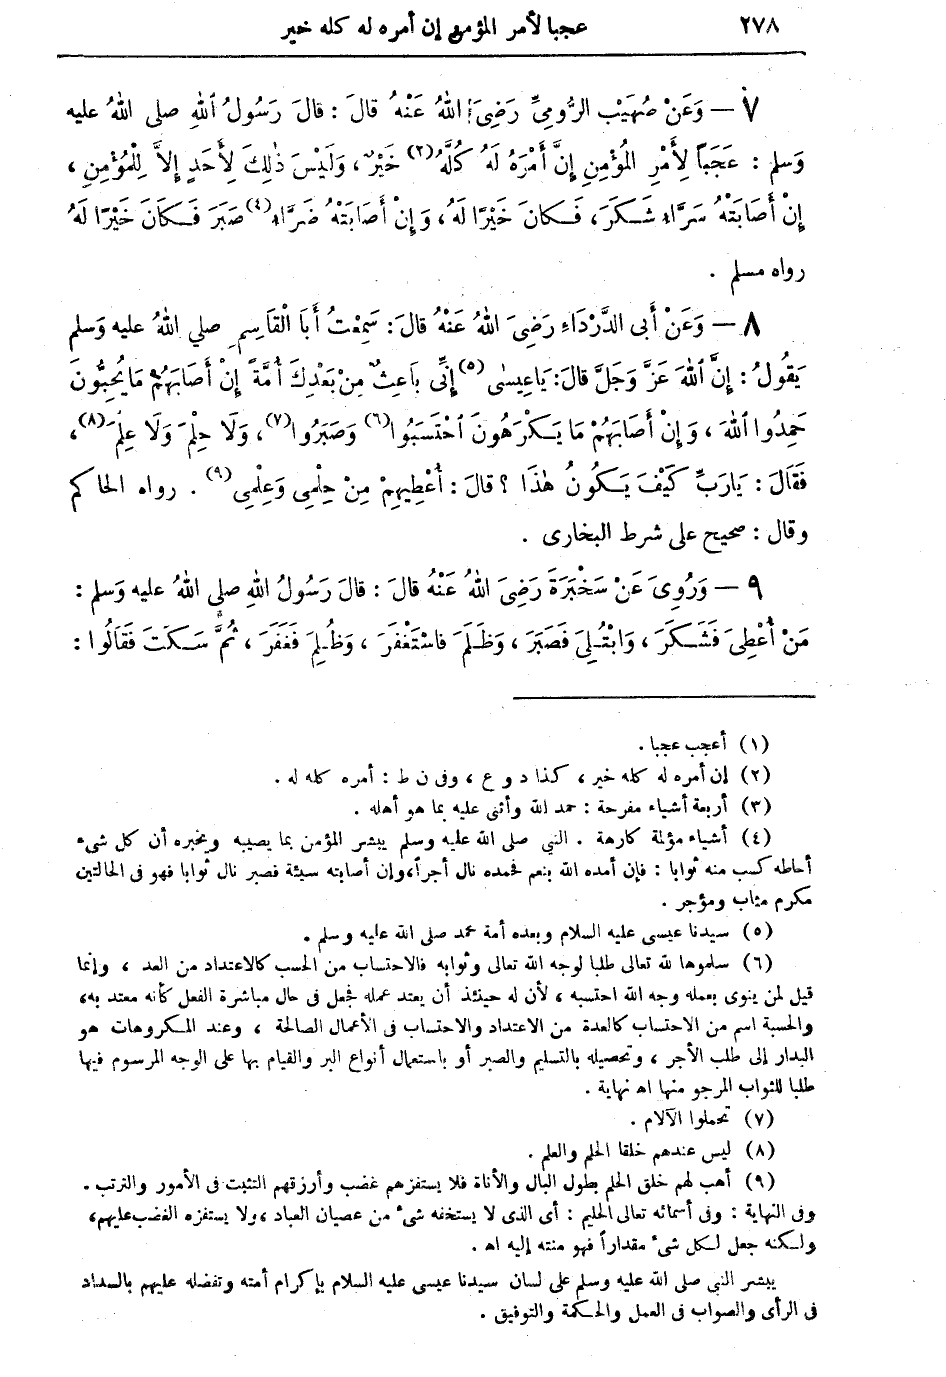 ٢٧٨ عجبا لأمر المؤمن إن أمره له كله خير
٧ — وَعَنْ صُهَيْبٍ الرُّومِيِّ رَضِيَ اللهُ عَنْهُ قالَ: قالَ رَسُولُ اللهِ صلى اللهُ عليه
وَسلم: عَجَبًا لِأَمْرِ المُؤْمِنِ إِنَّ أَمْرَهُ لَهُ كُلَّهُ (٢) خَيْرٌ، وَلَيْسَ ذٰلِكَ لِأَحَدٍ إِلَّا لِلْمُؤْمِنِ،
إِنْ أَصَابَتْهُ سَرَّاءُ شَكَرَ، فَكانَ خَيْرًا لَهُ، وَإِنْ أَصَابَتْهُ ضَرَّاءُ (٤) صَبَرَ فَكَانَ خَيْرًا لَهُ
رواه مسلم .
٨ — وَعَنْ أَبى الدَّرْدَاءِ رَضِىَ اللهُ عَنْهُ قالَ: سَمِعْتُ أَبَا الْقَاسِمِ صلي اللهُ عليه وَسلم
يَقُولُ: إِنَّ اللهَ عَزَّ وَجَلَّ قالَ: يَا عِيسٰى (٥) إِنِّى بَاعِثٌ مِنْ بَعْدِكَ أُمَّةً إِنْ أَصَابَهُمْ مَا يُحِبُّونَ
حَمِدُوا اللهَ، وَإِنْ أَصَابَهُمْ مَا يَكْرَهُونَ احْتَسَبُوا (٦) وَصَبَرُوا (٧)، وَلَا حِلْمَ وَلَا عِلْمَ (٨)،
فَقَالَ: يَارَبِّ كَيْفَ يَكُونُ هٰذَا؟ قالَ: أُعْطِيهِمْ مِنْ حِلْمِى وَعِلْمِى (٩). رواه الحاكم
وقال: صحيح على شرط البخارى .
٩ — وَرُوِىَ عَنْ سَخْبَرَةَ رَضِىَ اللهُ عَنْهُ قالَ: قالَ رَسُولُ اللهِ صلى اللهُ عليه وَسلم:
مَنْ أُعْطِىَ فَشَكَرَ، وَابْتُلِىَ فَصَبَرَ، وَظَلَمَ فَاسْتَغْفَرَ، وَظُلِمَ فَغَفَرَ، ثُمَّ سَكَتَ فَقَالُوا:
(١) أعجب عجبا .
(٢) إن أمره له كله خير، كذا د و ع، وفى ن ط: أمره كله له .
(٣) أربعة أشياء مفرحة: حمد الله وأثنى عليه بما هو أهله .
(٤) أشياء مؤلمة كارهة . النبي صلى الله عليه وسلم يبشر المؤمن بما يصيبه ويخبره أن كل شىء
أحاطه كسب منه ثوابا: فإن أمده الله بنعم فحمده نال أجراً، وإن أصابته سيئة فصبر نال ثوابا فهو فى الحالتين
مكرم مثاب ومؤجر .
(٥) سيدنا عيسى عليه السلام وبعده أمة محمد صلى الله عليه وسلم .
(٦) سلموها لله تعالى طلبا لوجه الله تعالى وثوابه فالاحتساب من الحسب كالاعتداد من العد، وإنما
قيل لمن ينوى بعمله وجه الله احتسبه، لأن له حينئذ أن يعتد عمله فجعل فى حال مباشرة الفعل كأنه معتد به،
والحسبة اسم من الاحتساب كالعدة من الاعتداد والاحتساب فى الأعمال الصالحة، وعند المكروهات هو
البدار إلى طلب الأجر، وتحصيله بالتسليم والصبر أو باستعمال أنواع البر والقيام بها على الوجه المرسوم فيها
طلبا للثواب المرجو منها اه نهاية .
(٧) تحملوا الآلام .
(٨) ليس عندهم خلقا الحلم والعلم .
(٩) أهب لهم خلق الحلم بطول البال والأناة فلا يستفزهم غضب وأرزقهم التثبت فى الأمور والترتب .
وفى النهاية: وفى أسمائه تعالى الحليم: أى الذى لا يستخفه شىء من عصيان العباد، ولا يستفزه الغضب عليهم،
ولكنه جعل لكل شىء مقداراً فهو منته إليه اه .
يبشر النبي صلى الله عليه وسلم على لسان سيدنا عيسى عليه السلام بإكرام أمته وتفضله عليهم بالسداد
فى الرأى والصواب فى العمل والحكمة والتوفيق .